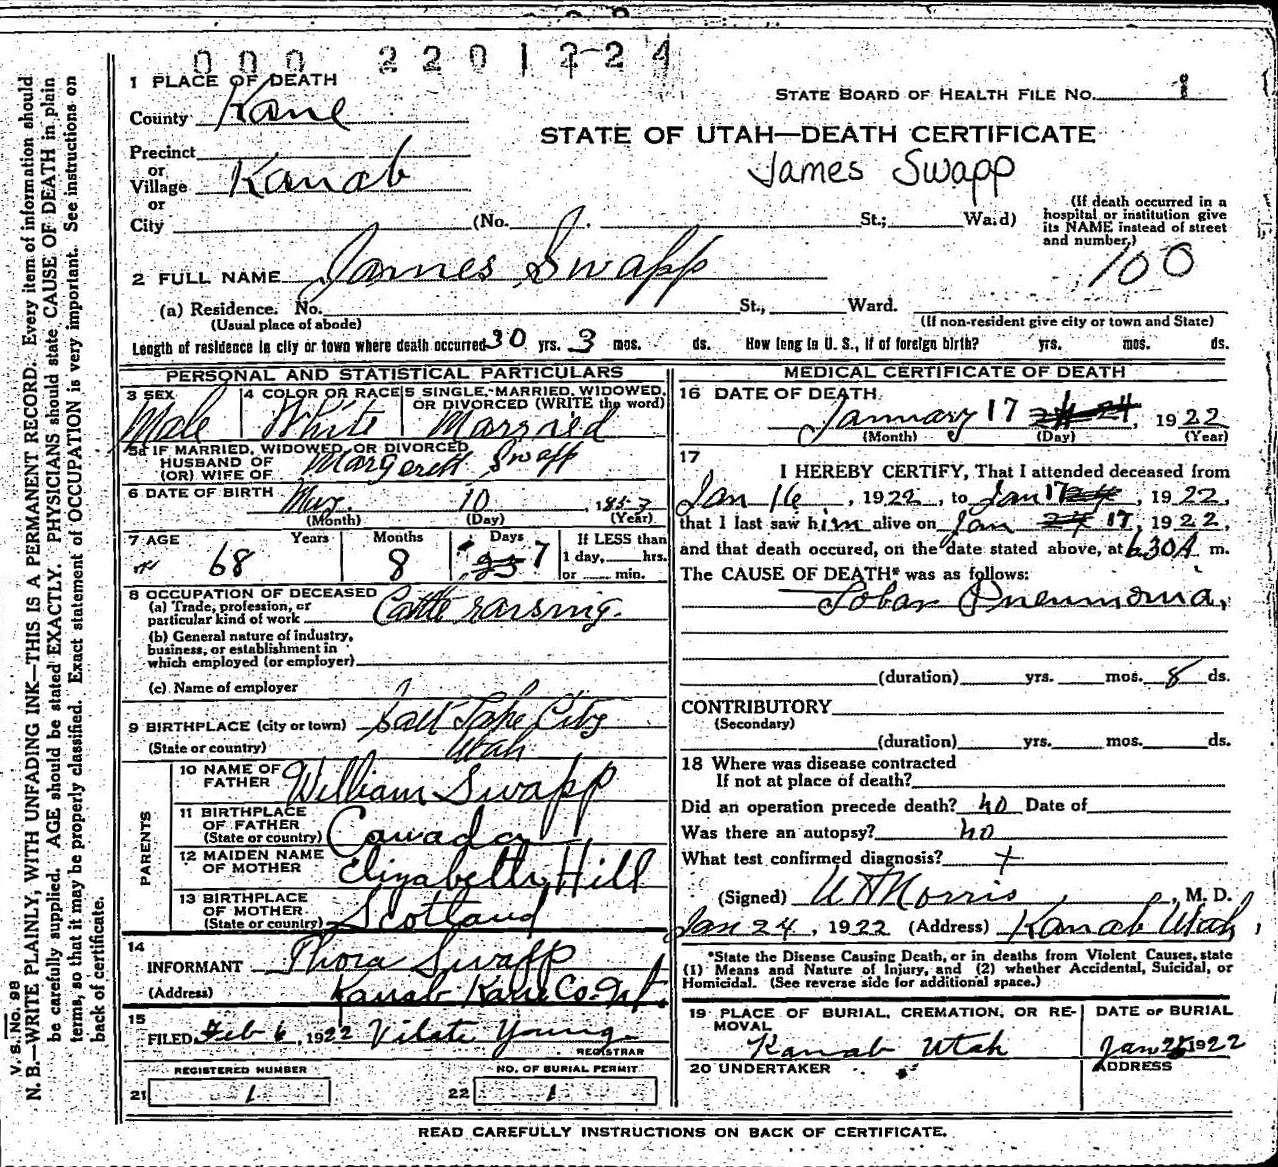 000 2201224
1 PLACE OF DEATH
County Kane
STATE BOARD OF HEALTH FILE NO. 1
STATE OF UTAH—DEATH CERTIFICATE
James Swapp
Precinct
or
Village Kanab
or
City (No. St.; Ward)
(If death occurred in a
hospital or institution give
its NAME instead of street
and number.)
100
2 FULL NAME James Swapp
(a) Residence. No. St., Ward.
(Usual place of abode) (If non-resident give city or town and State)
Length of residence in city or town where death occurred 30 yrs. 3 mos. ds. How long in U. S., if of foreign birth? yrs. mos. ds.
PERSONAL AND STATISTICAL PARTICULARS
3 SEX 4 COLOR OR RACE 5 SINGLE, MARRIED, WIDOWED,
OR DIVORCED (WRITE the word)
Male White Married
5a IF MARRIED, WIDOWED, OR DIVORCED
HUSBAND OF
(OR) WIFE OF Margerett Swapp
6 DATE OF BIRTH 10, 1853
(Month) (Day) (Year)
7 AGE Years Months Days If LESS than
1 day, hrs.
or min.
68 8 23 7
8 OCCUPATION OF DECEASED
(a) Trade, profession, or
particular kind of work Cattle raising.
(b) General nature of industry,
business, or establishment in
which employed (or employer)
(c) Name of employer
9 BIRTHPLACE (city or town) Salt Lake City
(State or country) Utah
PARENTS
10 NAME OF
FATHER William Swapp
11 BIRTHPLACE
OF FATHER
(State or country) Canada
12 MAIDEN NAME
OF MOTHER Elizabeth Hill
13 BIRTHPLACE
OF MOTHER
(State or country) Scotland
14
INFORMANT Thora Swapp
(Address) Kanab Kane Co. Ut.
15
FILED Feb 6, 1922 Vilate Young
REGISTRAR
REGISTERED NUMBER NO. OF BURIAL PERMIT
21 1 22 1
MEDICAL CERTIFICATE OF DEATH
16 DATE OF DEATH
January 17 24 24, 1922
(Month) (Day) (Year)
17
I HEREBY CERTIFY, That I attended deceased from
Jan 16, 1922, to Jan 17 24, 1922,
that I last saw him alive on Jan 24 17, 1922,
and that death occured, on the date stated above, at 630A m.
The CAUSE OF DEATH* was as follows:
Lobar Pneumonia,
(duration) yrs. mos. 8 ds.
CONTRIBUTORY
(Secondary)
(duration) yrs. mos. ds.
18 Where was disease contracted
If not at place of death?
Did an operation precede death? no Date of
Was there an autopsy? no
What test confirmed diagnosis? +
(Signed) Morris, M. D.
Jan 24, 1922 (Address) Kanab Utah,
*State the Disease Causing Death, or in deaths from Violent Causes, state
(1) Means and Nature of Injury, and (2) whether Accidental, Suicidal, or
Homicidal. (See reverse side for additional space.)
19 PLACE OF BURIAL, CREMATION, OR RE-
MOVAL
Kanab Utah
DATE OF BURIAL
Jan 1922
20 UNDERTAKER ADDRESS
READ CAREFULLY INSTRUCTIONS ON BACK OF CERTIFICATE.
V. S. NO. 98
N. B.—WRITE PLAINLY, WITH UNFADING INK—THIS IS A PERMANENT RECORD. Every item of information should
be carefully supplied. AGE should be stated EXACTLY. PHYSICIANS should state CAUSE OF DEATH in plain
terms, so that it may be properly classified. Exact statement of OCCUPATION is very important. See instructions on
back of certificate.